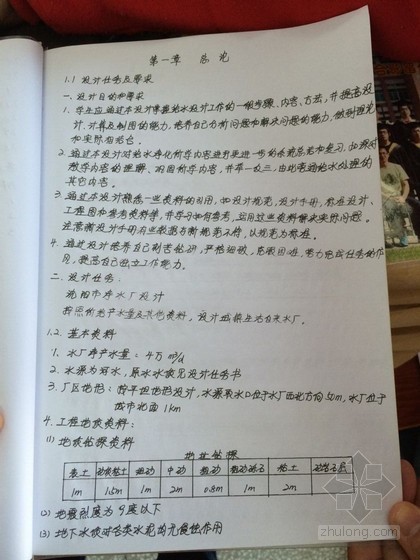 第一章 总论
1.1 设计任务及要求
一、设计目的和要求
1. 学生应通过本设计掌握给水设计工作的一般步骤、内容、方法,并提高设
计、计算及制图的能力,培养自己分析问题和解决问题的能力,做到理论
和实际相结合。
2. 通过本设计对给水净化所学内容进行更进一步的系统总结和复习,加深对
所学内容的理解、巩固所学内容,并举一反三,由此贯通给水处理的
其它内容。
3. 通过本设计熟悉一些资料的引用,如设计规范,设计手册,标准设计、
工程图和参考资料等,并学习如何参考、运用这些资料解决实际问题。
注意新设计手册有些数据与新规范不符,以规范为标准。
4. 通过设计培养自己刻苦钻研,严格细致,克服困难,努力完成任务的作
风,提高自己独立工作能力。
二、设计任务:
沈阳市净水厂设计
按照所给产水量及其他资料,设计城镇生活自来水厂。
1.2. 基本资料
1. 水厂净产水量: 4万 m³/d
2. 水源为河水,原水水质见设计任务书
3. 厂区地形: 按平坦地形设计,水源取水口位于水厂西北方向50m,水厂位于
城市北面 1km
4. 工程地质资料:
(1) 地质钻探资料
地质钻探
表土 砂质粘土 细砂 中砂 粗砂 粗砂砾石 粘土 砂岩石层
1m 1.5m 1m 2m 0.8m 1m 2m
(2) 地震烈度为 9度以下
(3) 地下水质对各类水泥均无侵蚀作用
zhulong.com